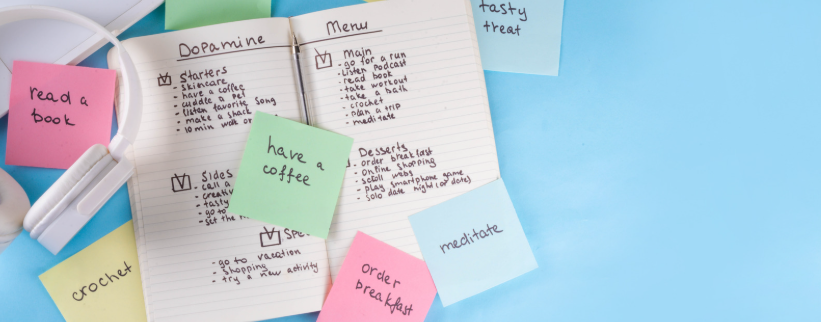 Dopamine Menu
Starters
- skincare
- have a coffee
- cuddle a pet
- listen favorite song
- make a snack
- 10 min walk or
Sides
- call a
- creativ
- tasty
- go to
- set the
Spe
- go to vacation
- shopping
- try a new activity
Main
- go for a run
- listen podcast
- read book
- take workout
- take a bath
- crochet
- plan a trip
- meditate
Desserts
- order breakfast
- online shopping
- scroll webs
- play smartphone game
- solo date night (or date)
read a
book
have a
coffee
tasty
treat
crochet
order
breakfast
meditate